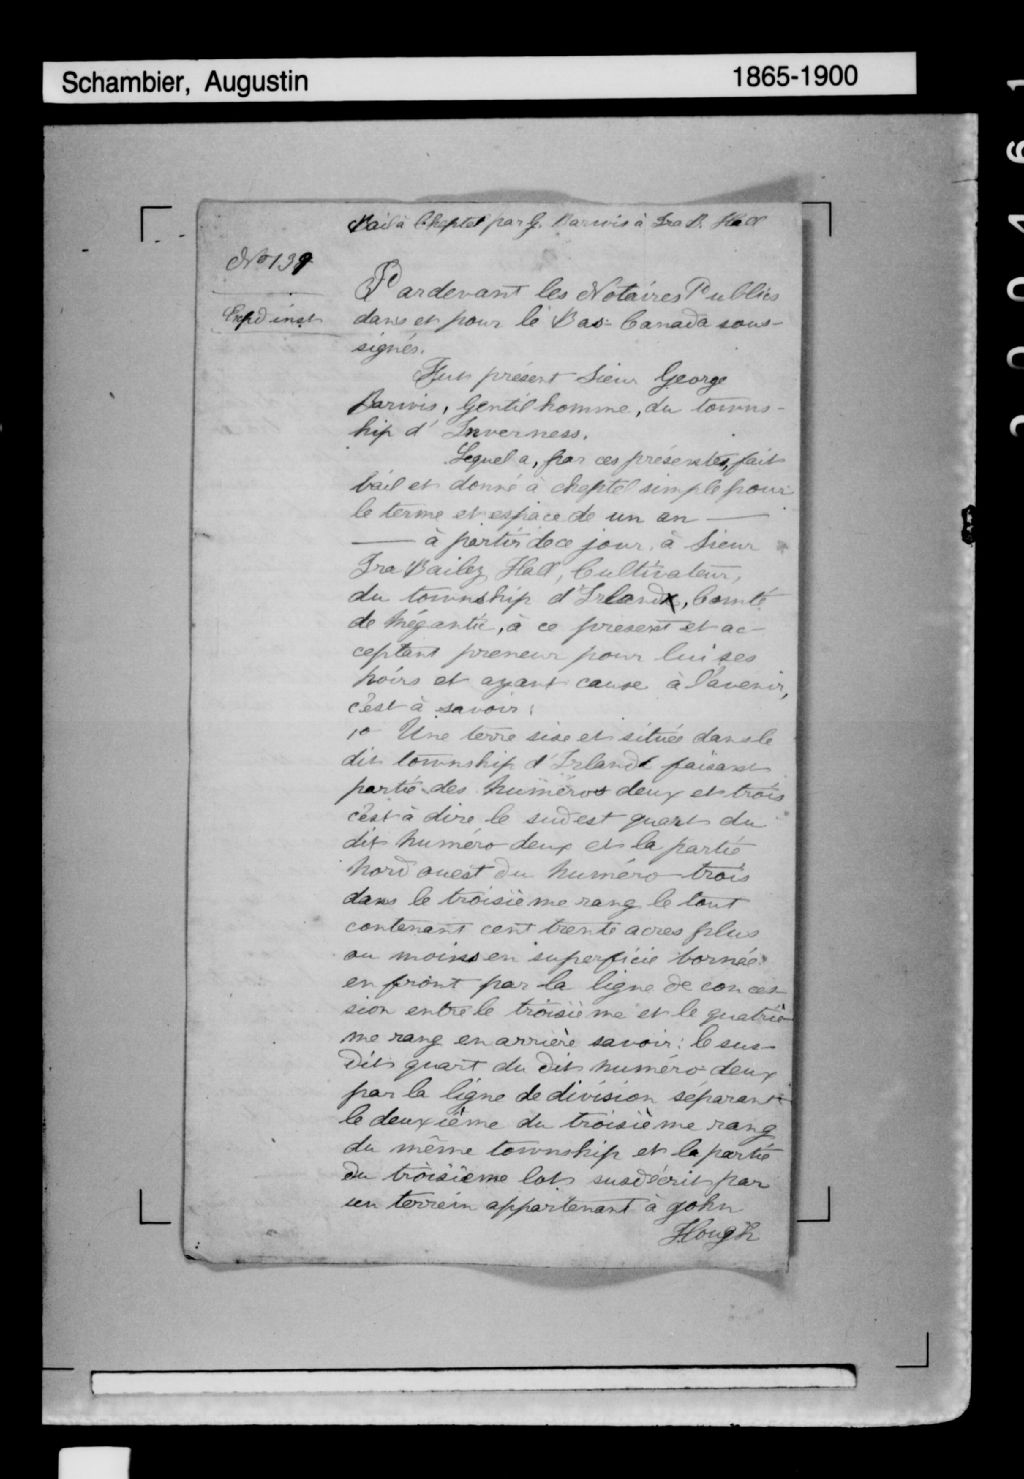 Schambier, Augustin
1865-1900
Bail à Cheptel par G. Barwis à Ira B. Hall
No 139
Expd inst
Pardevant les Notaires Publics
dans et pour le Bas-Canada sous-
signés.
Fut présent Sieur George
Barwis, Gentilhomme, du towns-
hip d'Inverness.
Lequel a, par ces présentes, fait
bail et donné à cheptel simple pour
le terme et espace de un an —
— à partir de ce jour, à Sieur
Ira Bailey Hall, Cultivateur,
du township d'Irlande, Comté
de Mégantic, à ce présent et ac-
ceptant preneur pour lui ses
hoirs et ayant cause à l'avenir,
c'est à savoir:
1o Une terre sise et située dans le
dit township d'Irlande faisant
partie des numéros deux et trois
c'est à dire le sud est quart du
dit numéro deux et la partie
nord ouest du numéro trois
dans le troisième rang le tout
contenant cent trente acres plus
ou moins en superficie bornée:
en front par la ligne de conces-
sion entre le troisième et le quatriè-
me rang en arrière savoir: le sus-
dit quart du dit numéro deux
par la ligne de division séparant
le deuxième du troisième rang
du même township et la partie
du troisième lot susdécrit par
un terrein appartenant à John
Hough